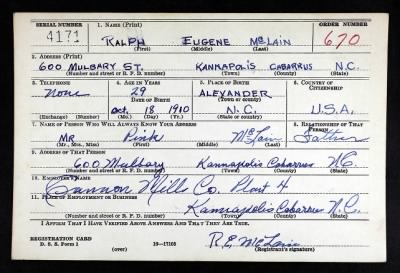 SERIAL NUMBER 1. NAME (Print) ORDER NUMBER
4171 RALPH EUGENE McLAIN 670
(First) (Middle) (Last)
2. ADDRESS (Print)
600 MULBARY ST. KANNAPOLIS CABARRUS N.C.
(Number and street or R. F. D. number) (Town) (County) (State)
3. TELEPHONE 4. AGE IN YEARS 5. PLACE OF BIRTH 6. COUNTRY OF CITIZENSHIP
None 29 ALEXANDER
DATE OF BIRTH (Town or county)
Oct. 18 1910 N.C. U.S.A.
(Exchange) (Number) (Mo.) (Day) (Yr.) (State or country)
7. NAME OF PERSON WHO WILL ALWAYS KNOW YOUR ADDRESS 8. RELATIONSHIP OF THAT PERSON
Mr Pink McLain Father
(Mr., Mrs., Miss) (First) (Middle) (Last)
9. ADDRESS OF THAT PERSON
600 Mulbary Kannapolis Cabarrus N.C.
(Number and street or R. F. D. number) (Town) (County) (State)
10. EMPLOYER'S NAME
Cannon Mill Co. Plant 4
11. PLACE OF EMPLOYMENT OR BUSINESS
Kannapolis Cabarrus N.C.
(Number and street or R. F. D. number) (Town) (County) (State)
I AFFIRM THAT I HAVE VERIFIED ABOVE ANSWERS AND THAT THEY ARE TRUE.
REGISTRATION CARD
D. S. S. Form 1 (over) 16—17105
R.E. McLain
(Registrant's signature)